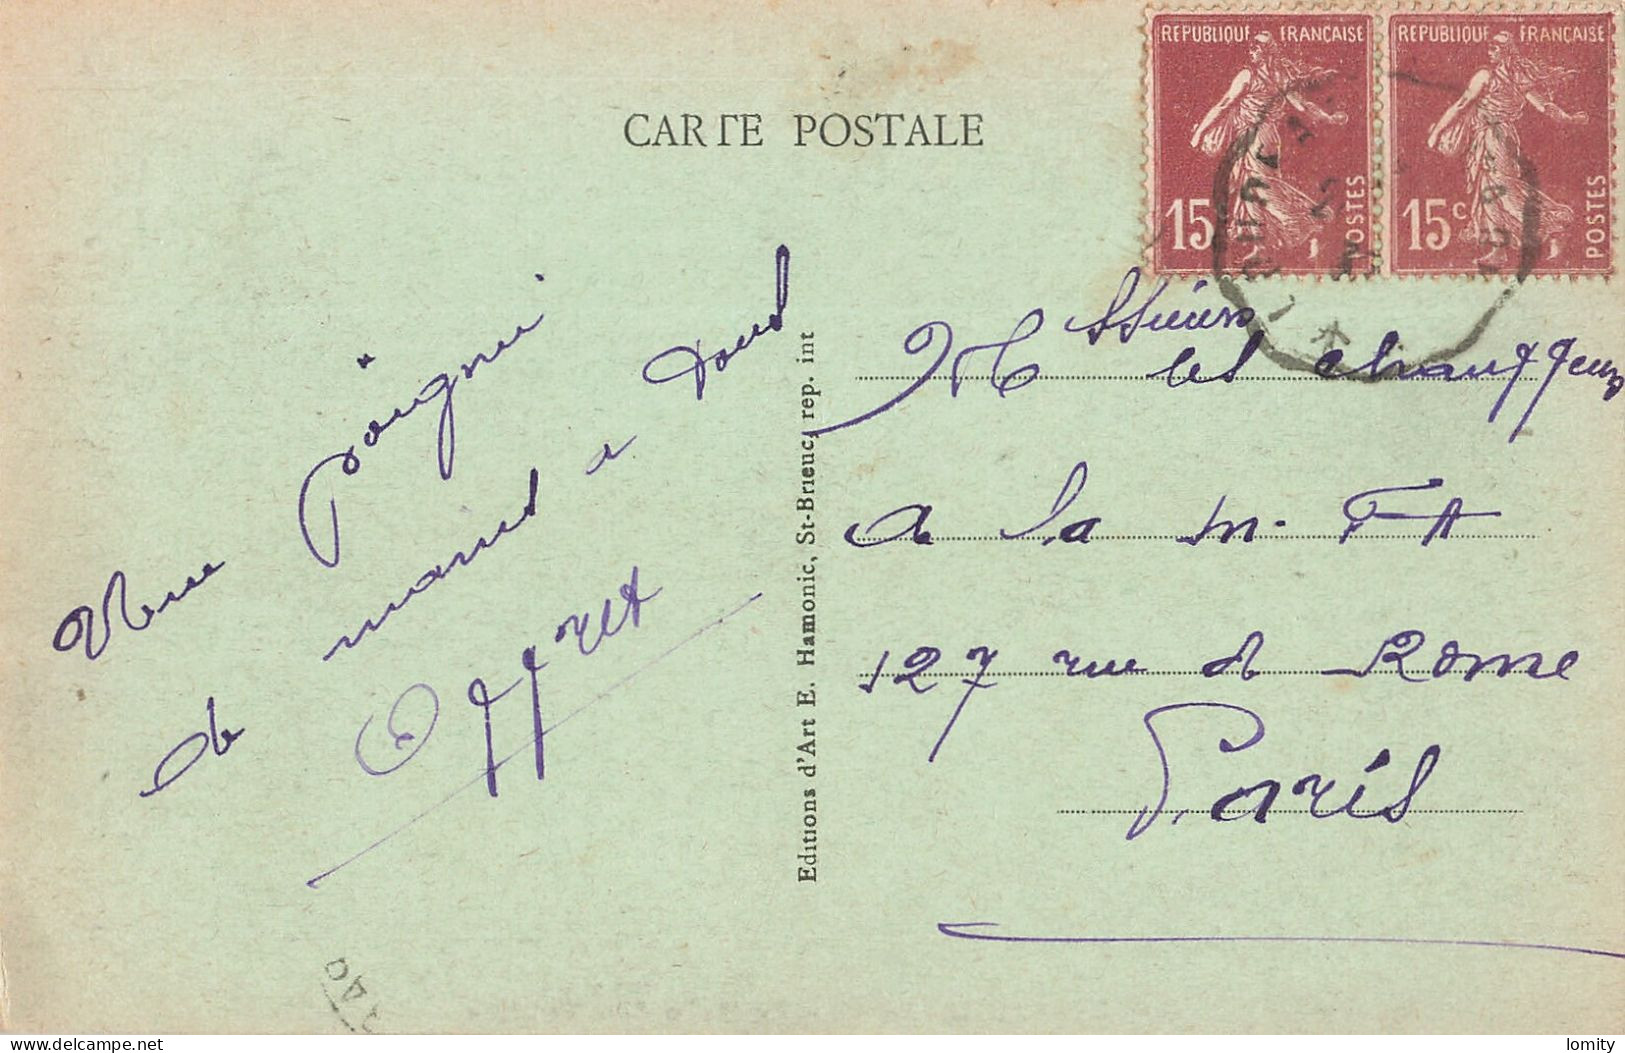 CARTE POSTALE
REPUBLIQUE FRANÇAISE
15
POSTES
REPUBLIQUE FRANÇAISE
15c
POSTES
Une poignée
de mains a tous
Offret
Editions d'Art E. Hamonic, St-Brieuc, rep. int
Messieurs
les chauffeurs
de La m. FA
127 rue de Rome
Paris
delcampe.net
lomity